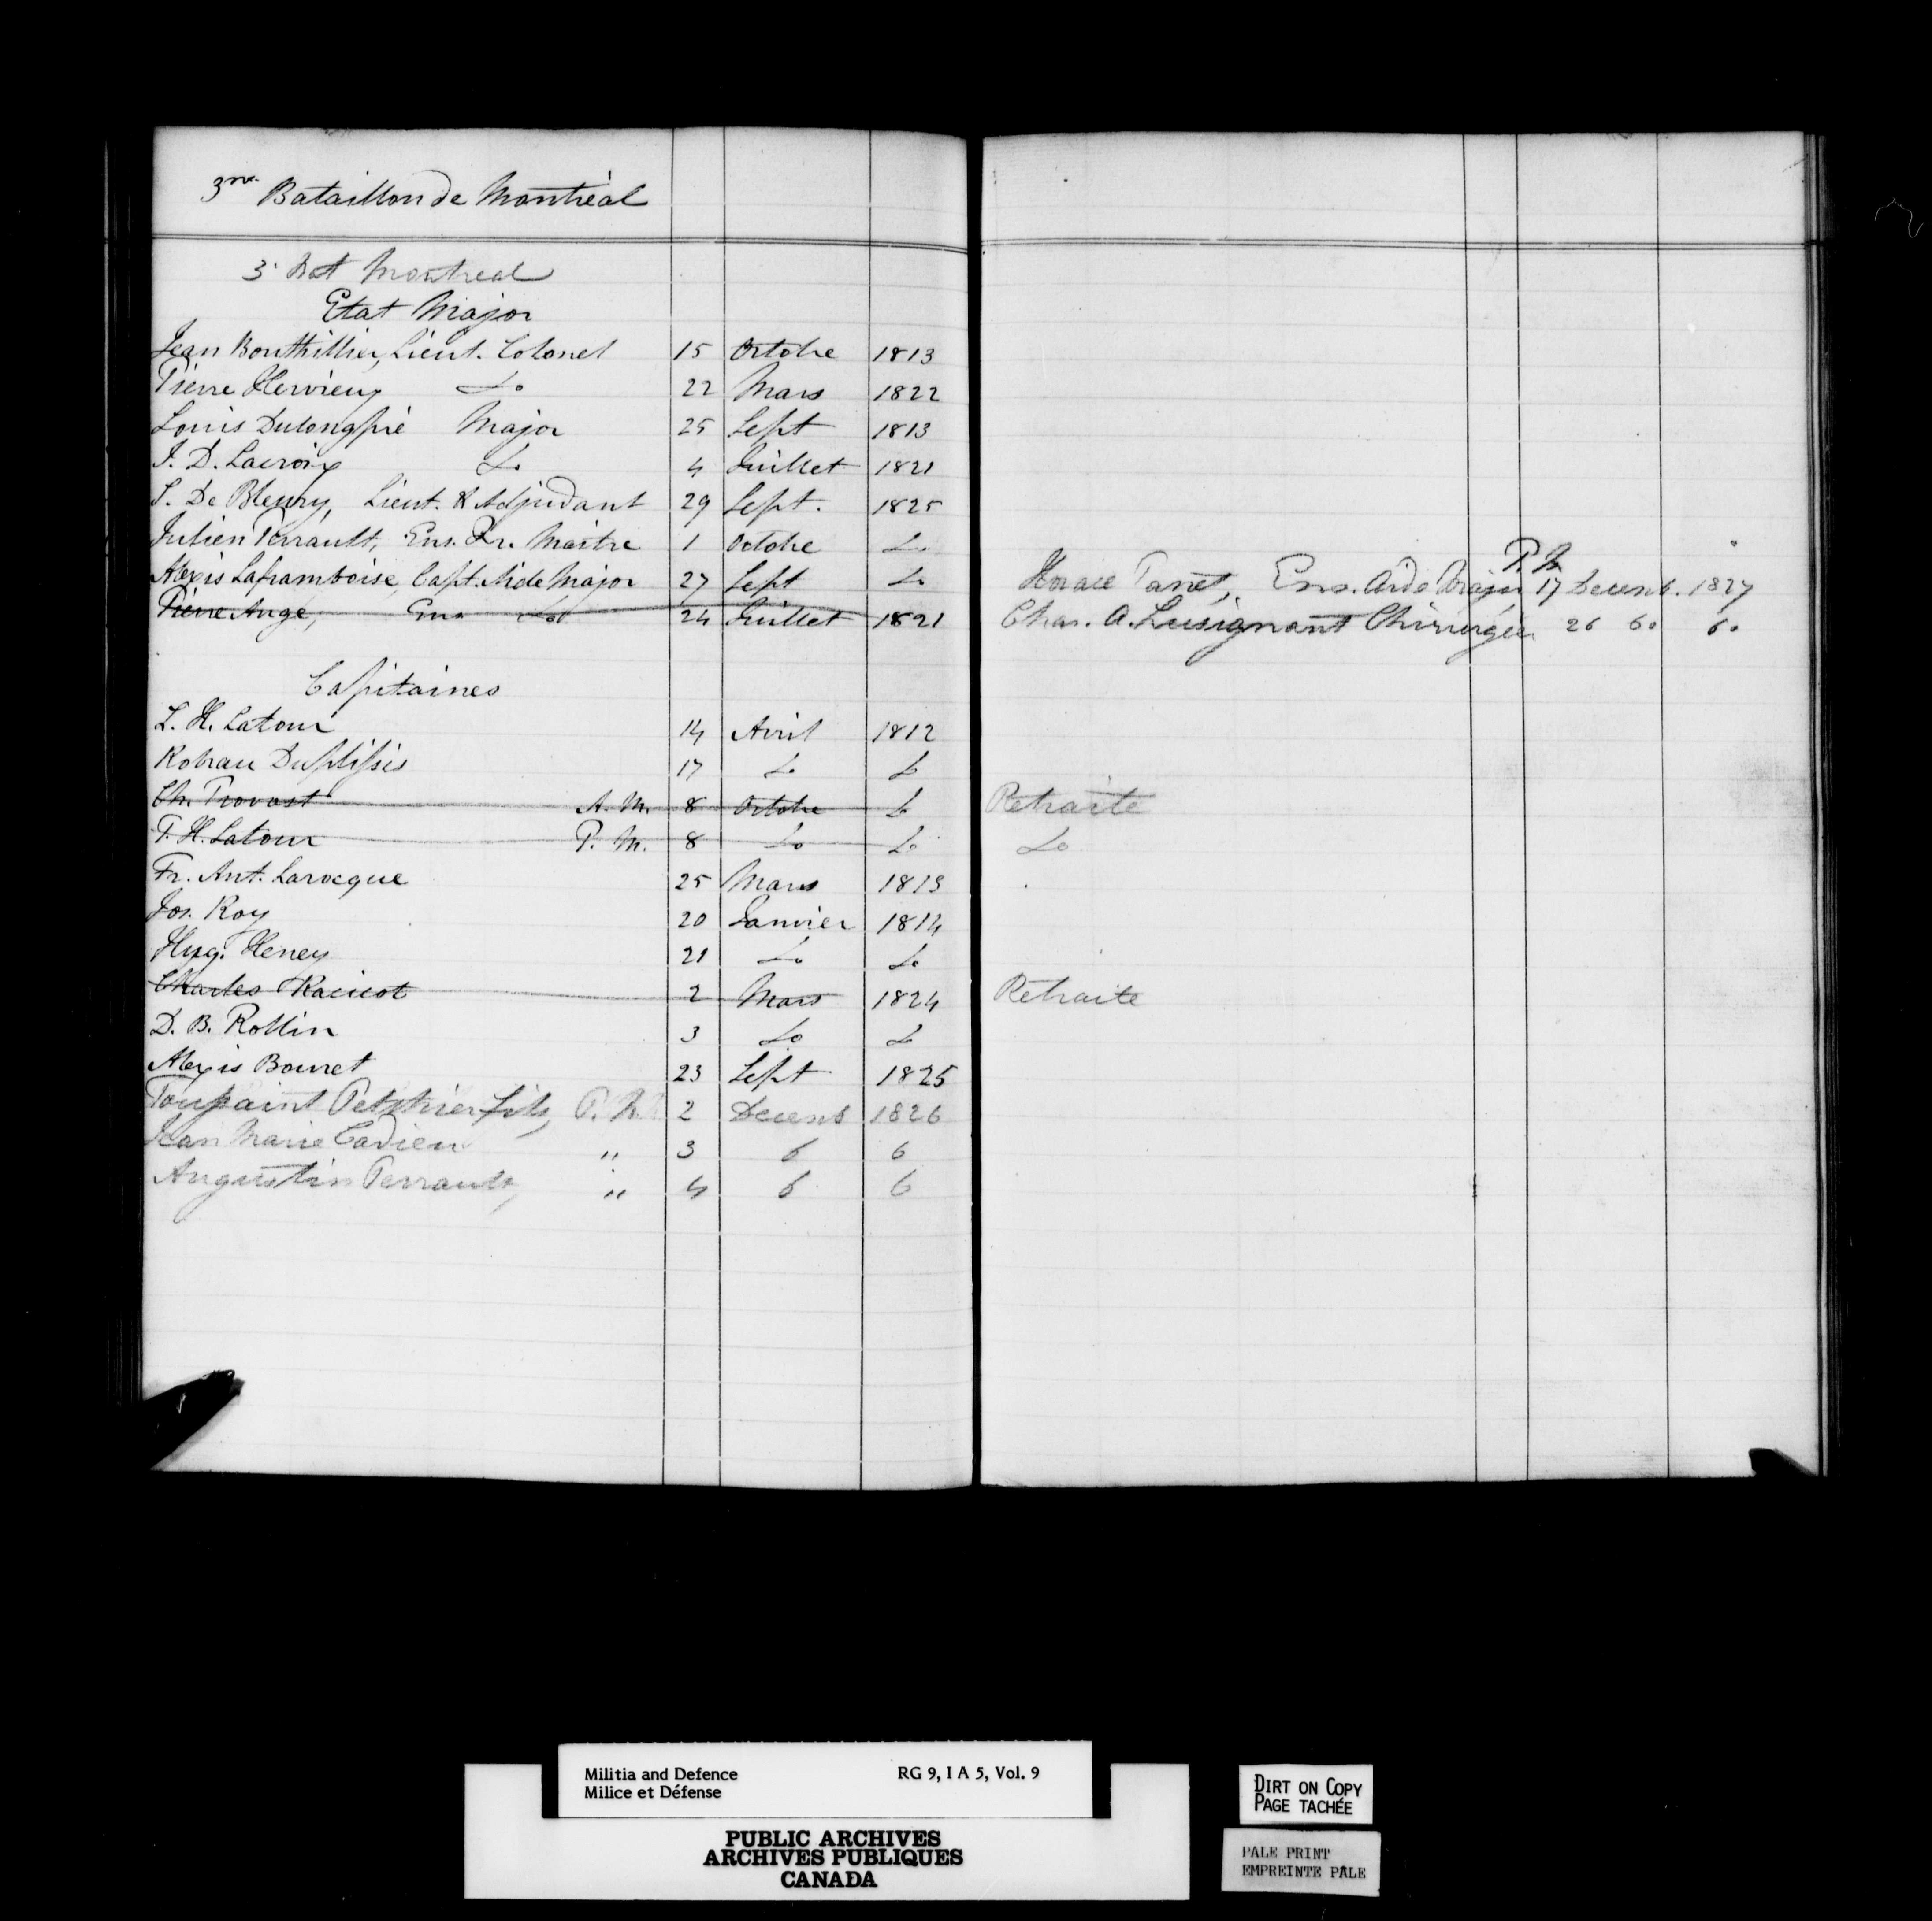 3me Bataillon de Montréal
3e Bat Montreal
Etat Major
Jean Bouthillier, Lieut. Colonel 15 Octobre 1813
Pierre Hervieux Do 22 Mars 1822
Louis Dulongpré Major 25 Sept 1813
J. D. Lacroix Do 4 Juillet 1821
S. De Bleury, Lieut. & Adjudant 29 Sept. 1825
Julien Perrault, Ens. Qr. Maitre 1 Octobre Do
Alexis Laframboise, Capt. Aide Major 27 Sept Do
Pierre Auge, Ens Do 24 Juillet 1821
Capitaines
L. H. Latour 14 Avril 1812
Robrau Duplissis 17 Do Do
Ch. Provost A. M. 8 Octobre Do
P. H. Latour P. M. 8 Do Do
Fr. Ant. Larocque 25 Mars 1813
Jos. Roy 20 Janvier 1814
Hug. Heney 21 Do Do
Charles Racicot 2 Mars 1824
D. B. Rollin 3 Do Do
Alexis Bourret 23 Sept 1825
Toussaint Peltier fils, P. M. 2 Decemb 1826
Jean Marie Cadieux " 3 6 6
Augustin Perrault, " 4 6 6
P. M.
Horace Panet, Ens. Aide Major 17 Decemb. 1827
Chas. A. Lusignant Chirurgien 26 60 60
Retraite
Do
Retraite
Militia and Defence RG 9, I A 5, Vol. 9
Milice et Défense
PUBLIC ARCHIVES
ARCHIVES PUBLIQUES
CANADA
DIRT ON COPY
PAGE TACHÉE
PALE PRINT
EMPREINTE PÂLE